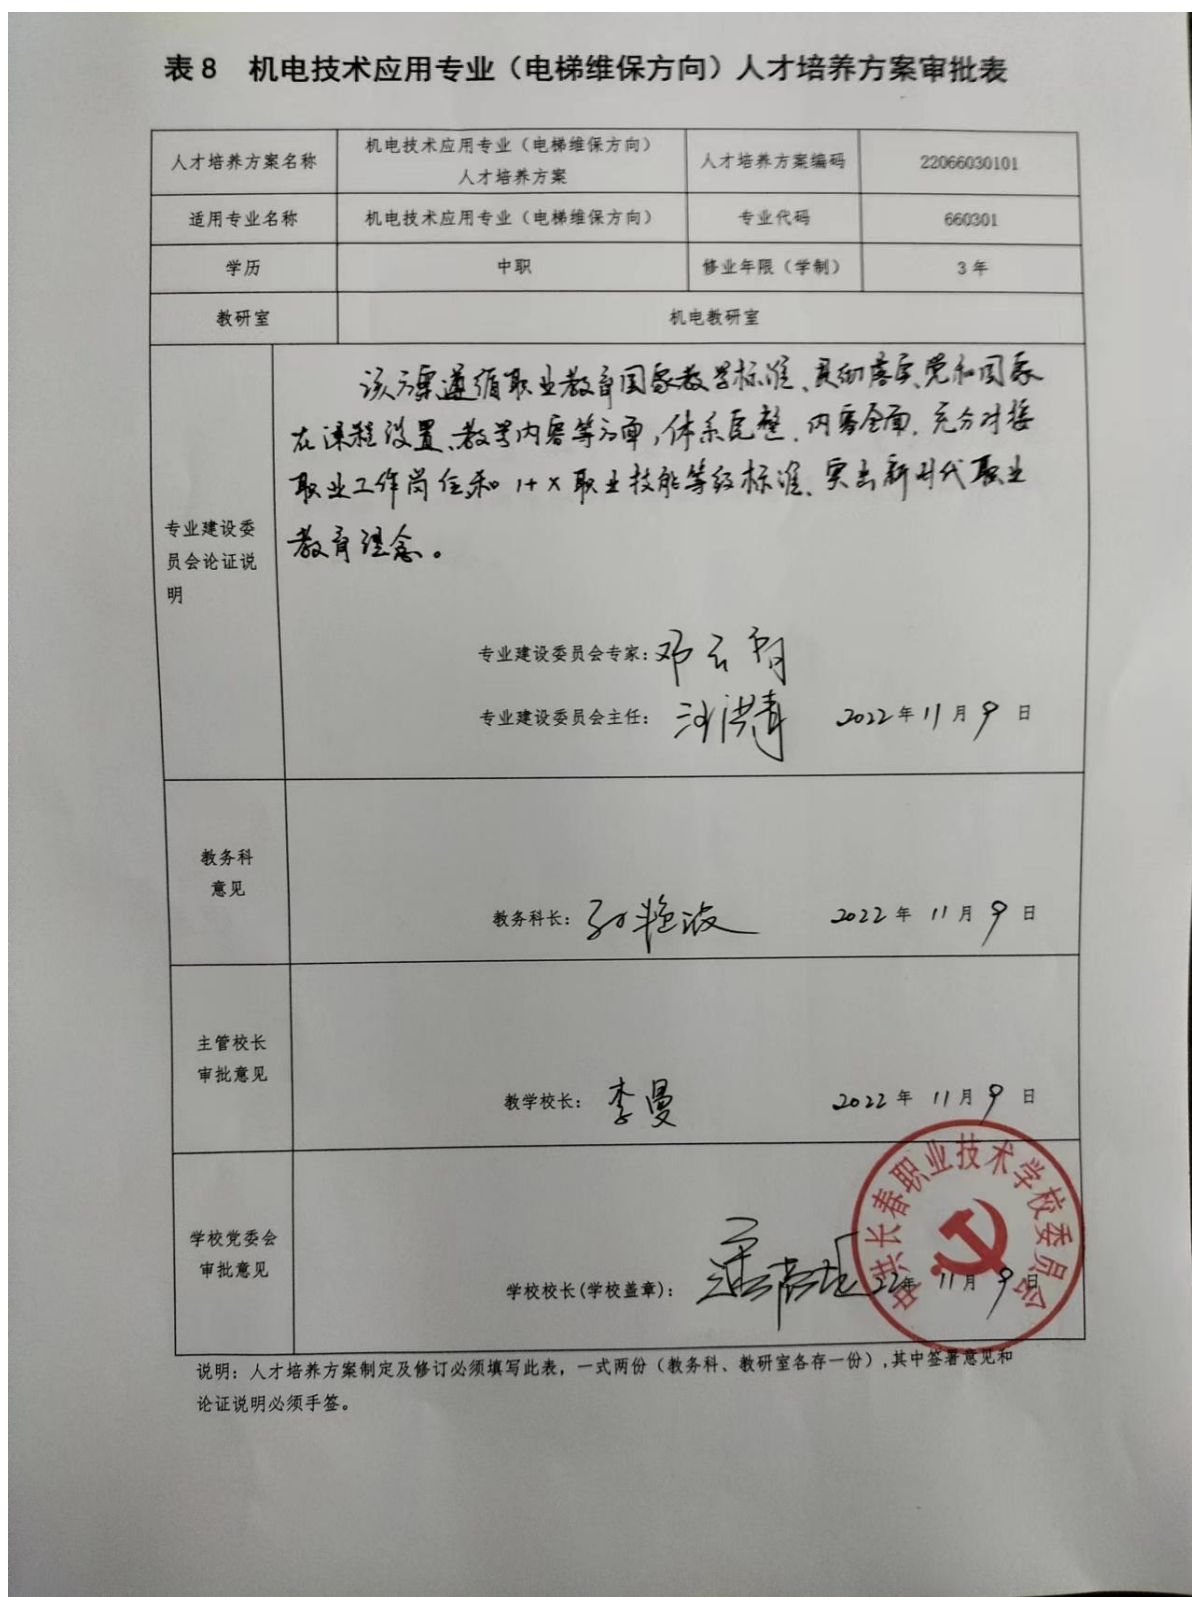 表8 机电技术应用专业（电梯维保方向）人才培养方案审批表
人才培养方案名称
机电技术应用专业（电梯维保方向）
人才培养方案
人才培养方案编码
22066030101
适用专业名称
机电技术应用专业（电梯维保方向）
专业代码
660301
学历
中职
修业年限（学制）
3年
教研室
机电教研室
专业建设委
员会论证说
明
该方案遵循职业教育国家教学标准、贯彻落实党和国家
在课程设置、教学内容等方面，体系完整、内容全面、充分对接
职业工作岗位和1+X职业技能等级标准、突出新时代职业
教育理念。
专业建设委员会专家：邓云
专业建设委员会主任：洪 2022年11月9日
教务科
意见
教务科长：孙艳波 2022年11月9日
主管校长
审批意见
教学校长：李曼 2022年11月9日
学校党委会
审批意见
学校校长(学校盖章)： 22年11月9日
中共长春职业技术学校委员会
说明：人才培养方案制定及修订必须填写此表，一式两份（教务科、教研室各存一份）,其中签署意见和
论证说明必须手签。